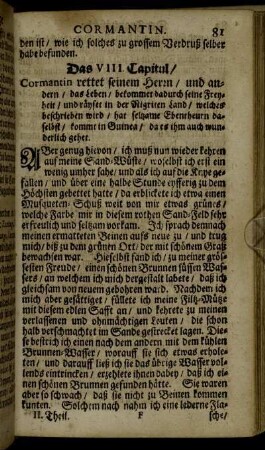 CORMANTIN. 81
den ist / wie ich solches zu grossem Verdruß selber
habe befunden.
Das VIII. Capitul /
Cormantin rettet seinem Herrn / und an-
dern / das Leben / bekommet dadurch seine Frey-
heit / und räyset in der Nigriten Land / welches
beschrieben wird / hat seltzame Ebentheurn da-
selbst / komt in Guinea / da es ihm auch wun-
derlich gehet.
Aber genug hievon / ich muß nun wieder kehren
auf meine Sand-Wüste / woselbst ich erst ein
wenig umher sahe / und als ich auf die Knye ge-
fallen / und über eine halbe Stunde eyfferig zu dem
Höchsten gebettet hatte / da erblickete ich etwa einen
Musqueten-Schuß weit von mir etwas grünes /
welche Farbe mir in diesem rothen Sand-Feld sehr
erfreulich und seltzam vorkam. Ich sprach demnach
meinen ermatteten Beinen aufs neue zu / und trug
mich / biß zu dem grünen Ort / der mit schönem Graß
bewachsen war. Hieselbst fand ich / zu meiner grös-
sesten Freude / einen schönen Brunnen süssen Was-
sers / an welchem ich mich dergestalt labete / daß ich
gleichsam von neuem gebohren ward. Nachdem ich
mich aber gesättiget / füllete ich meine Filtz-Mütze
mit diesem edlen Safft an / und kehrete zu meinen
verlassenen und ohnmächtigen Leuten / die schon
halb verschmachtet im Sande gestrecket lagen. Die-
se bestrich ich einen nach dem andern mit dem kühlen
Brunnen-Wasser / worauff sie sich etwas erhole-
ten / und darauff ließ ich sie das übrige Wasser vol-
lends eintrincken / erzehlete ihnen dabey / daß ich ei-
nen schönen Brunnen gefunden hätte. Sie waren
aber so schwach / daß sie nicht zu Beinen kommen
kunten. Solchem nach nahm ich eine lederne Fla-
II. Theil. F sche /